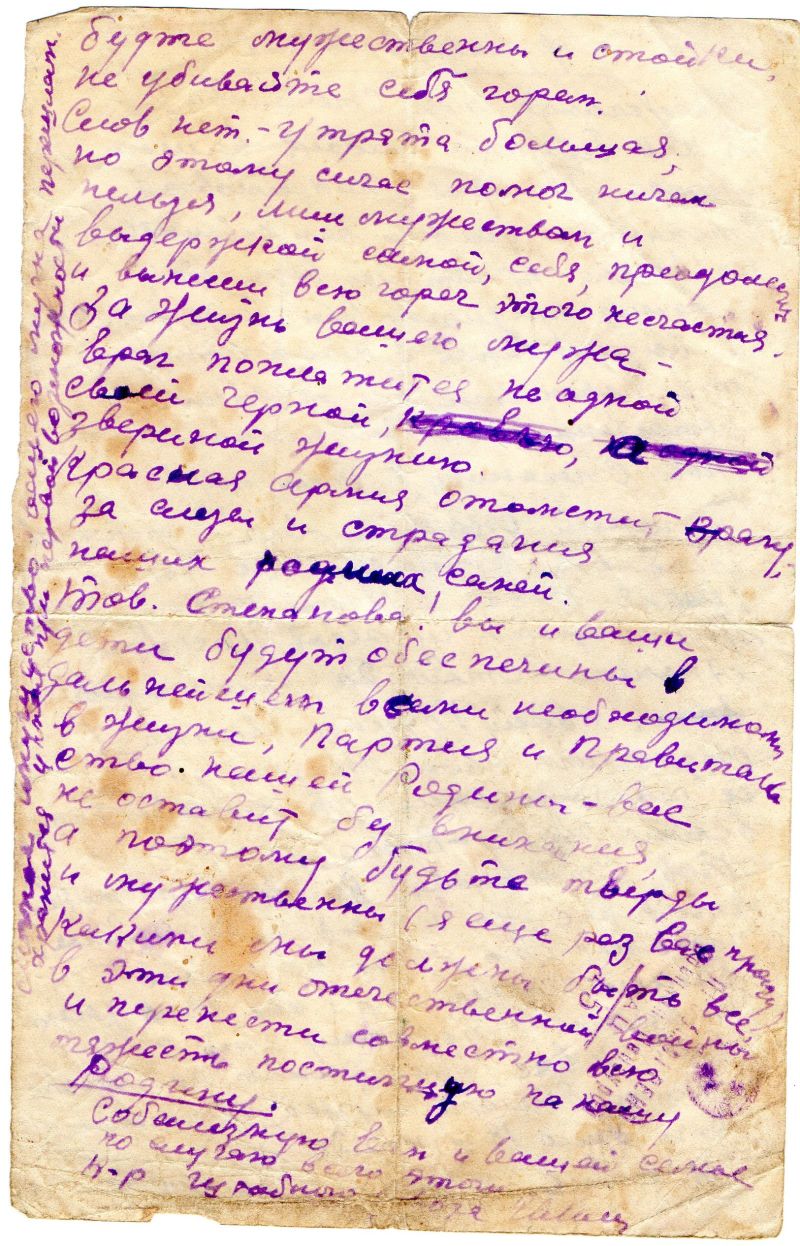 будте мужественны и стойки,
не убивайте себя горем.
Слов нет. – утрата большая,
но этому сичас помоч ничем
нельзя, лиш мужеством и
выдержкой самой, себя, преодолеть
и вынеси всю гореч этого несчастия.
За жизнь вашего мужа –
враг поплатится не одной
своей черной,
звериной жизнию.
Красная армия отомстит врагу,
за слезы и страдания
наших родных, семей.
Тов. Степанова! вы и ваши
дети будут обеспечины в
дальнейшем всеми необходимыми
в жизни, Партия и Правитель
ство нашей Родины – вас
не оставит бу внимания,
а поэтому будьте тверды
и мужественны (я еще раз вас прошу)
Какими мы должны быть все,
в эти дни отечественной войны
и перенести совместно всю
тяжесть постигшую на нашу
Родину.
Соболизную вам и вашей семье
по случаю всего этого
К-р
имущество вашего мужа
хранится у нас при первой возможности перешлем.